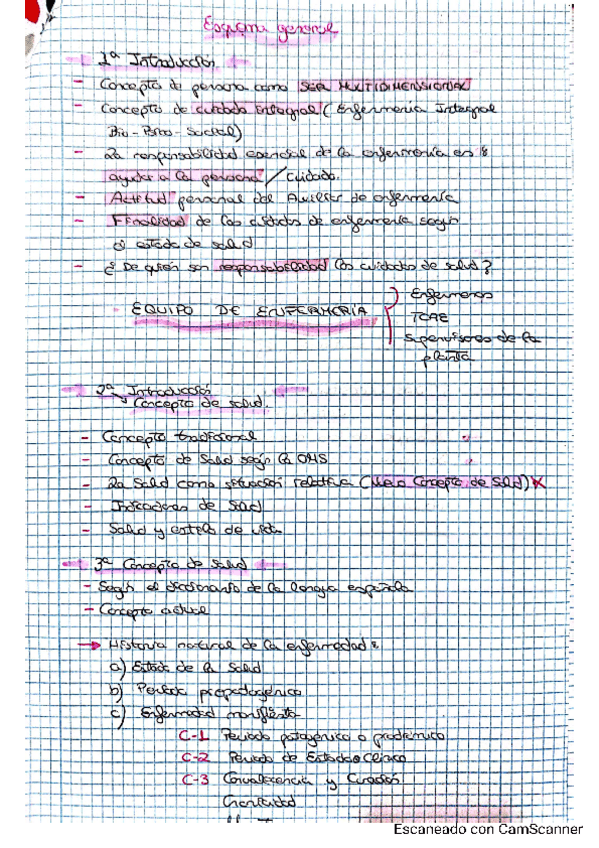 Esquema general
1ª Introducción
- Concepto de persona como SER MULTIDIMENSIONAL
- Concepto de cuidado Integral (Enfermería Integral
Bio-Psico-Social)
- La responsabilidad esencial de la enfermería es:
ayudar a la persona / cuidado.
- Actitud personal del Auxiliar de enfermería
- Finalidad de los cuidados de enfermería según
el estado de salud
- ¿De quién son responsabilidad los cuidados de salud?
EQUIPO DE ENFERMERÍA
Enfermeros
TCAE
Supervisores de la
planta
2ª Introducción
Concepto de salud.
- Concepto tradicional
- Concepto de Salud según la OMS
- La Salud como situación relativa (Concepto de Salud) X
- Indicadores de Salud
- Salud y estilo de vida
3ª Concepto de salud
- Según el diccionario de la lengua española
- Concepto actual
→ Historia natural de la enfermedad:
a) Estado de la Salud
b) Periodo prepatogénico
c) Enfermedad manifiesta
C-1 Periodo patogénico o prodrómico
C-2 Periodo de Estado o Clínico
C-3 Convalecencia y Curación
Cronicidad
Escaneado con CamScanner